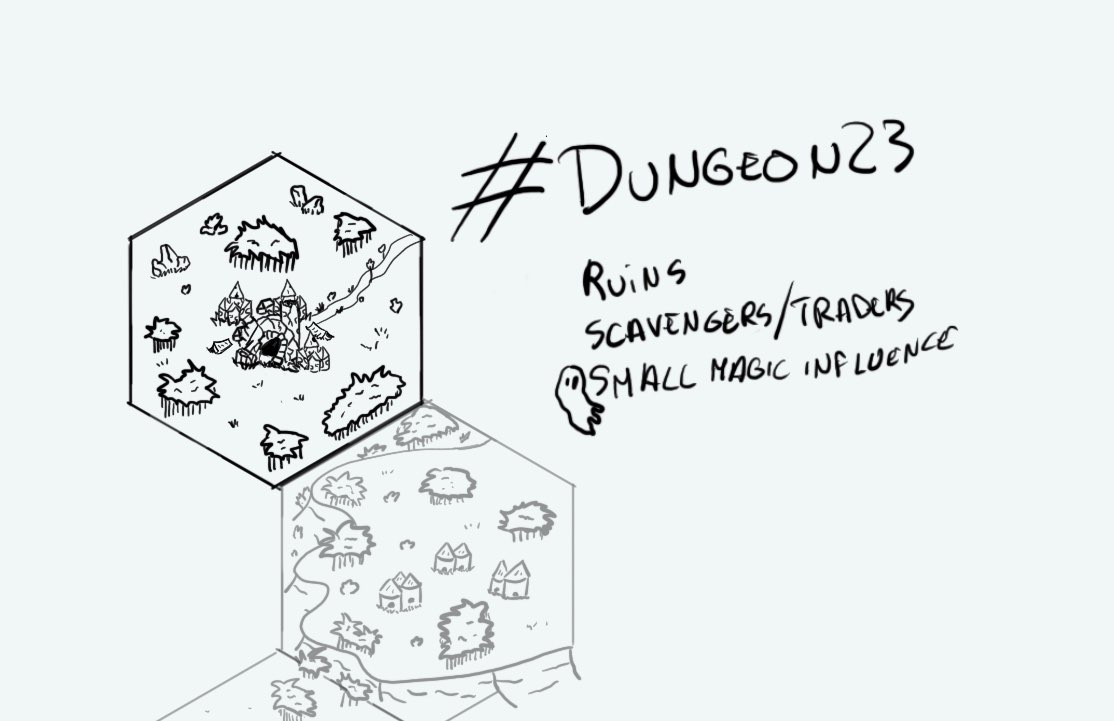 #DUNGEON23
RUiNS
SCAVENGERS/TRADERS
SMALL MAGIC INFLUENCE